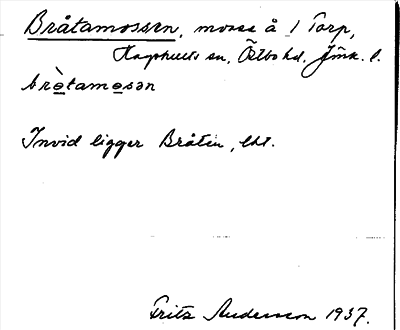 Bråtamossen, mosse å 1 Torp,
Hagshults sn, Östbo hd, Jönk. l.
brò̲tamo̲sən
Invid ligger Bråten, lht.
Fritz Andersson 1937.